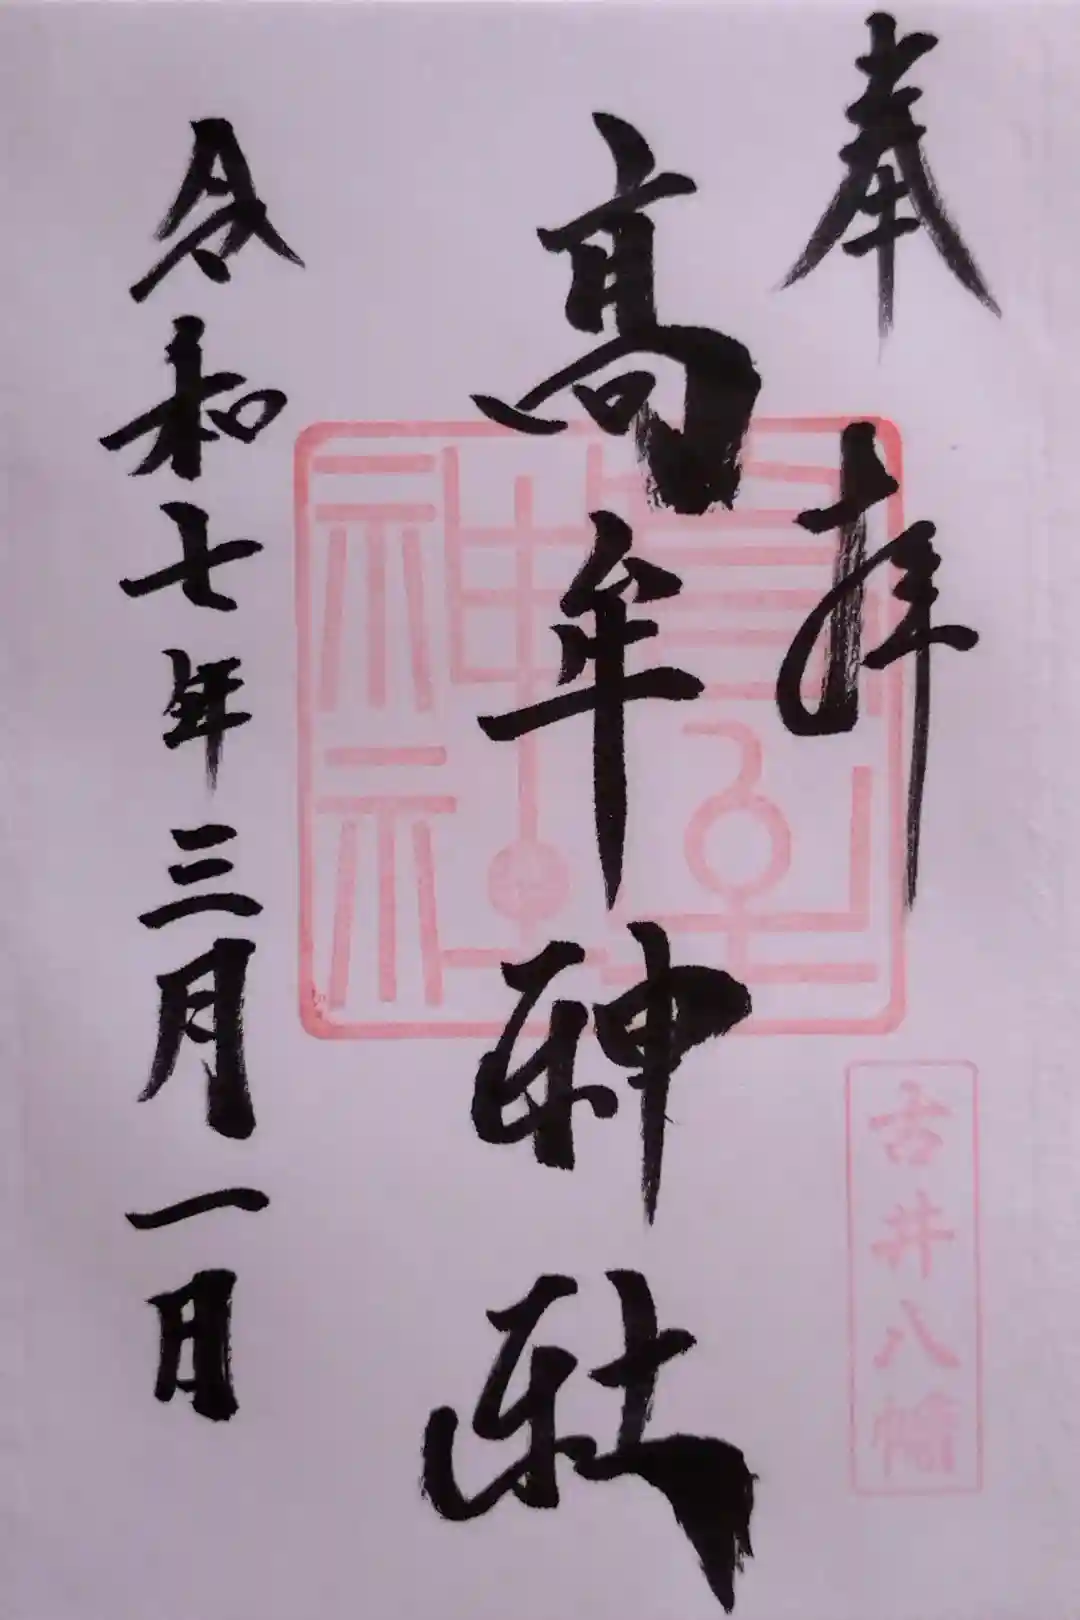 奉拝
古井八幡
髙牟神社
髙牟神社
令和七年三月一日